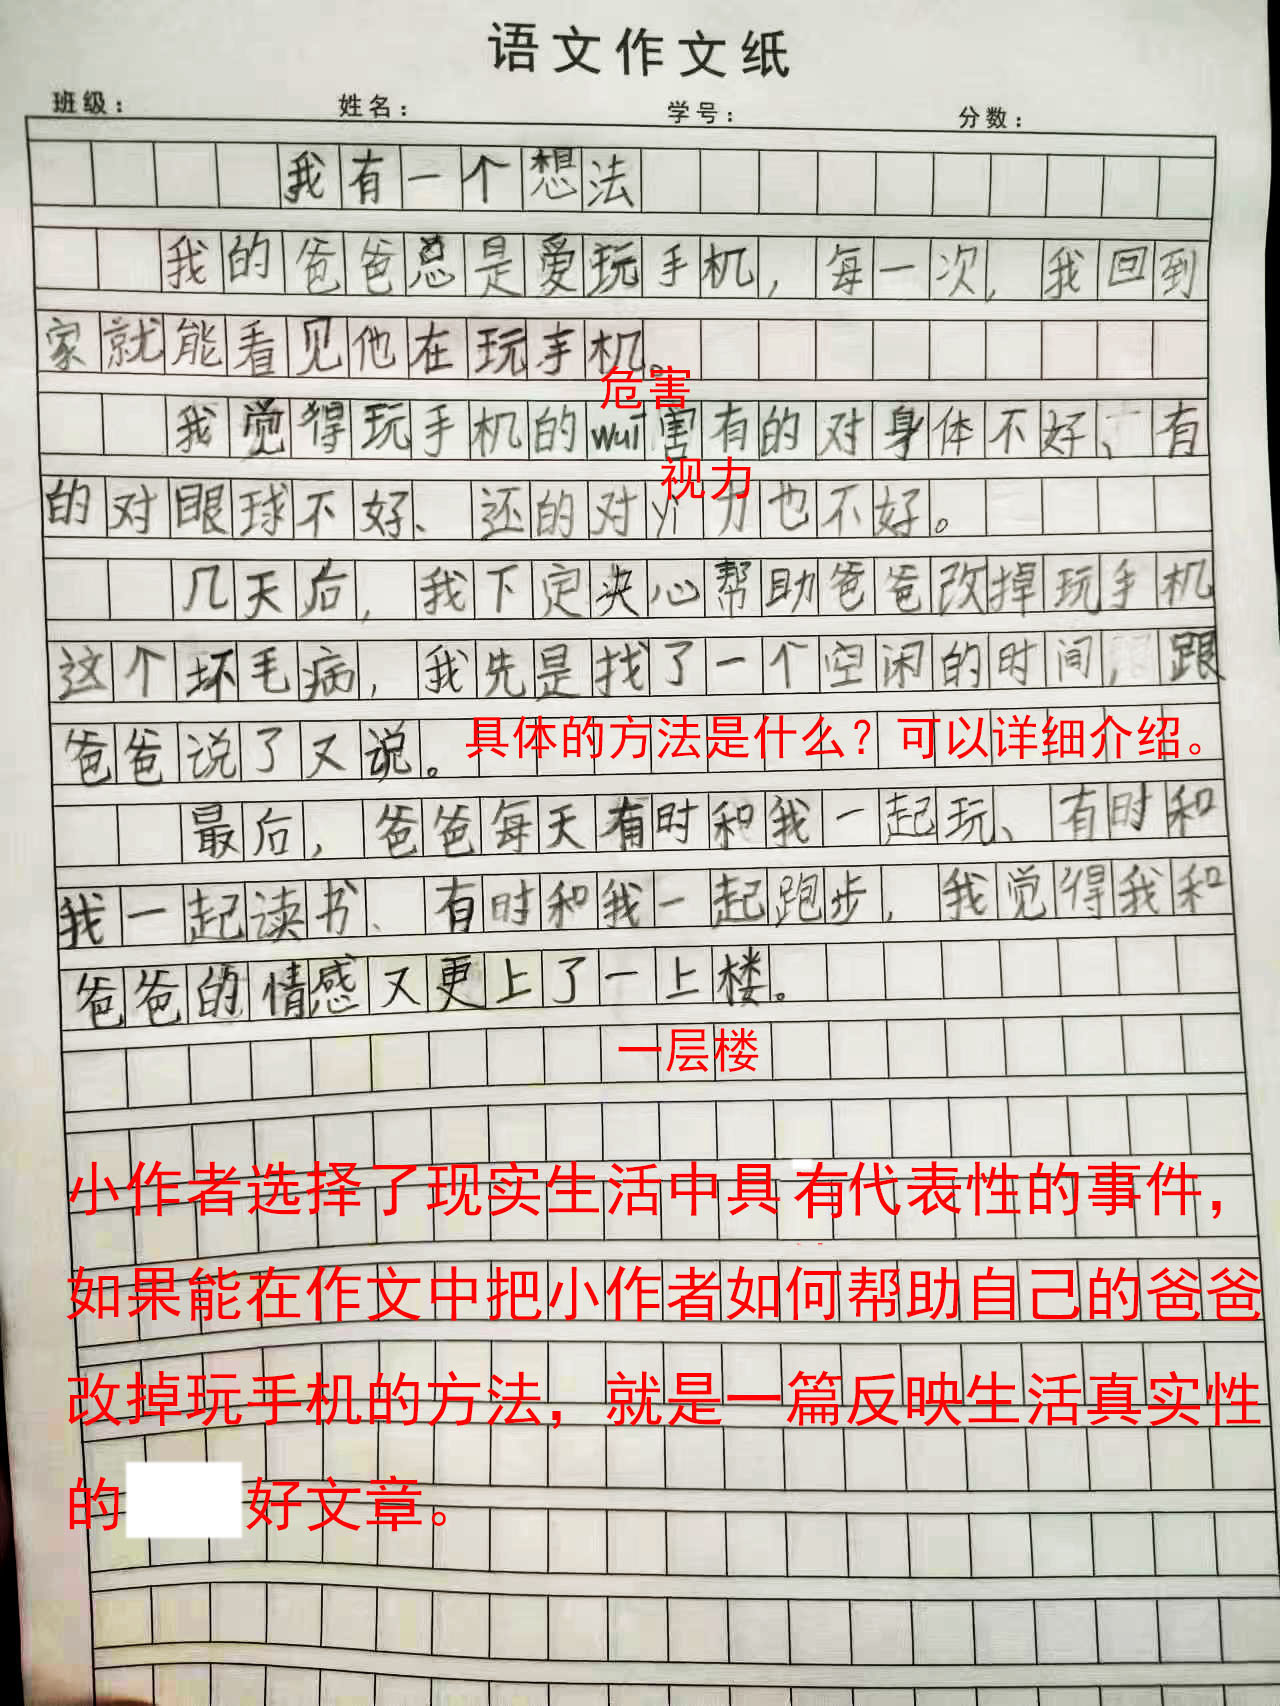 语文作文纸
班级： 姓名： 学号： 分数：
我有一个想法
我的爸爸总是爱玩手机，每一次，我回到
家就能看见他在玩手机。
危害
我觉得玩手机的wui害有的对身体不好、有
视力
的对眼球不好、还的对yi力也不好。
几天后，我下定决心帮助爸爸改掉玩手机
这个坏毛病，我先是找了一个空闲的时间，跟
爸爸说了又说。具体的方法是什么？可以详细介绍。
最后，爸爸每天有时和我一起玩、有时和
我一起读书、有时和我一起跑步，我觉得我和
爸爸的情感又更上了一上楼。
一层楼
小作者选择了现实生活中具有代表性的事件，
如果能在作文中把小作者如何帮助自己的爸爸
改掉玩手机的方法，就是一篇反映生活真实性
的 好文章。